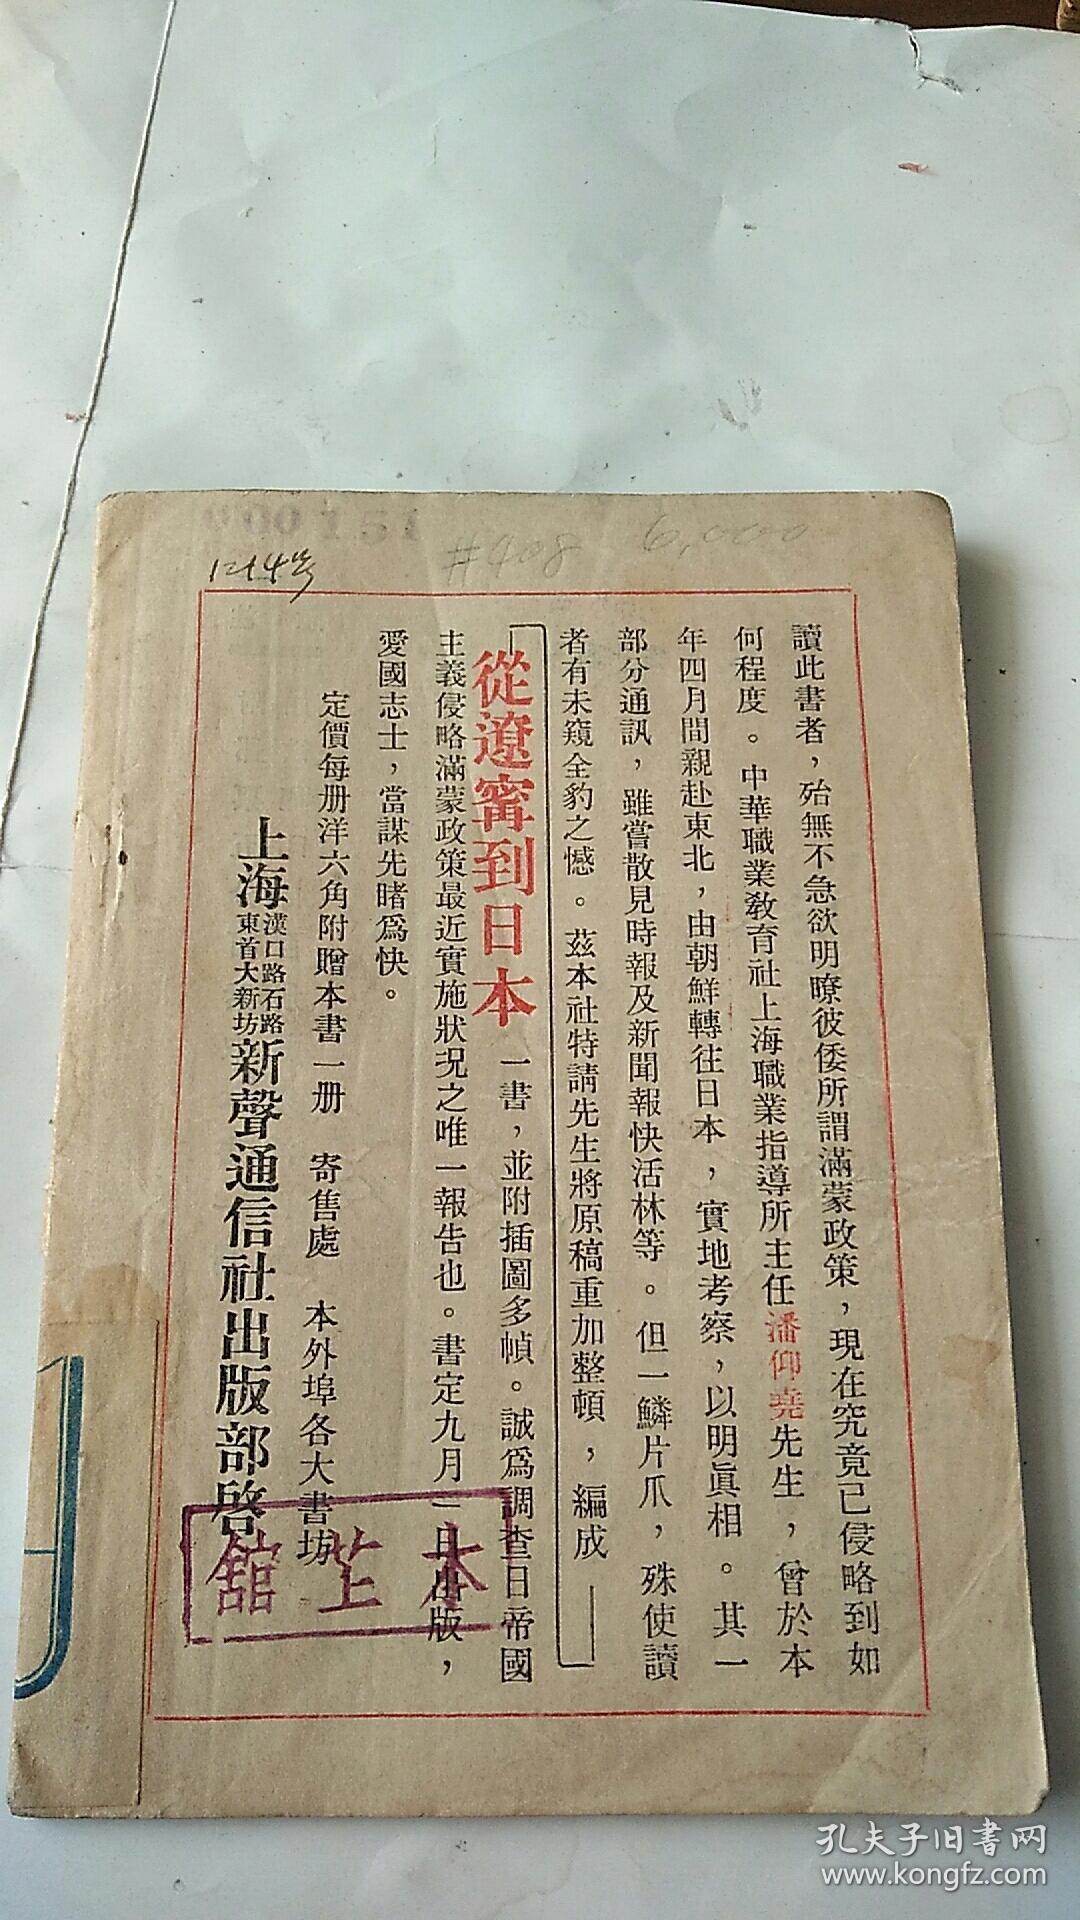 900151
#408
6,000
讀此書者，殆無不急欲明瞭彼倭所謂滿蒙政策，現在究竟已侵略到如
何程度。中華職業教育社上海職業指導所主任潘仰堯先生，曾於本
年四月間親赴東北，由朝鮮轉往日本，實地考察，以明眞相。其一
部分通訊，雖嘗散見時報及新聞報快活林等。但一鱗片爪，殊使讀
者有未窺全豹之憾。茲本社特請先生將原稿重加整頓，編成——
從遼寗到日本 一書，並附插圖多幀。誠爲調查日帝國
主義侵略滿蒙政策最近實施狀況之唯一報告也。書定九月一日出版，
愛國志士，當謀先睹爲快。
定價每册洋六角附贈本書一册 寄售處 本外埠各大書坊
上海漢口路石路東首大新坊新聲通信社出版部啓
孔夫子旧書网
www.kongfz.com